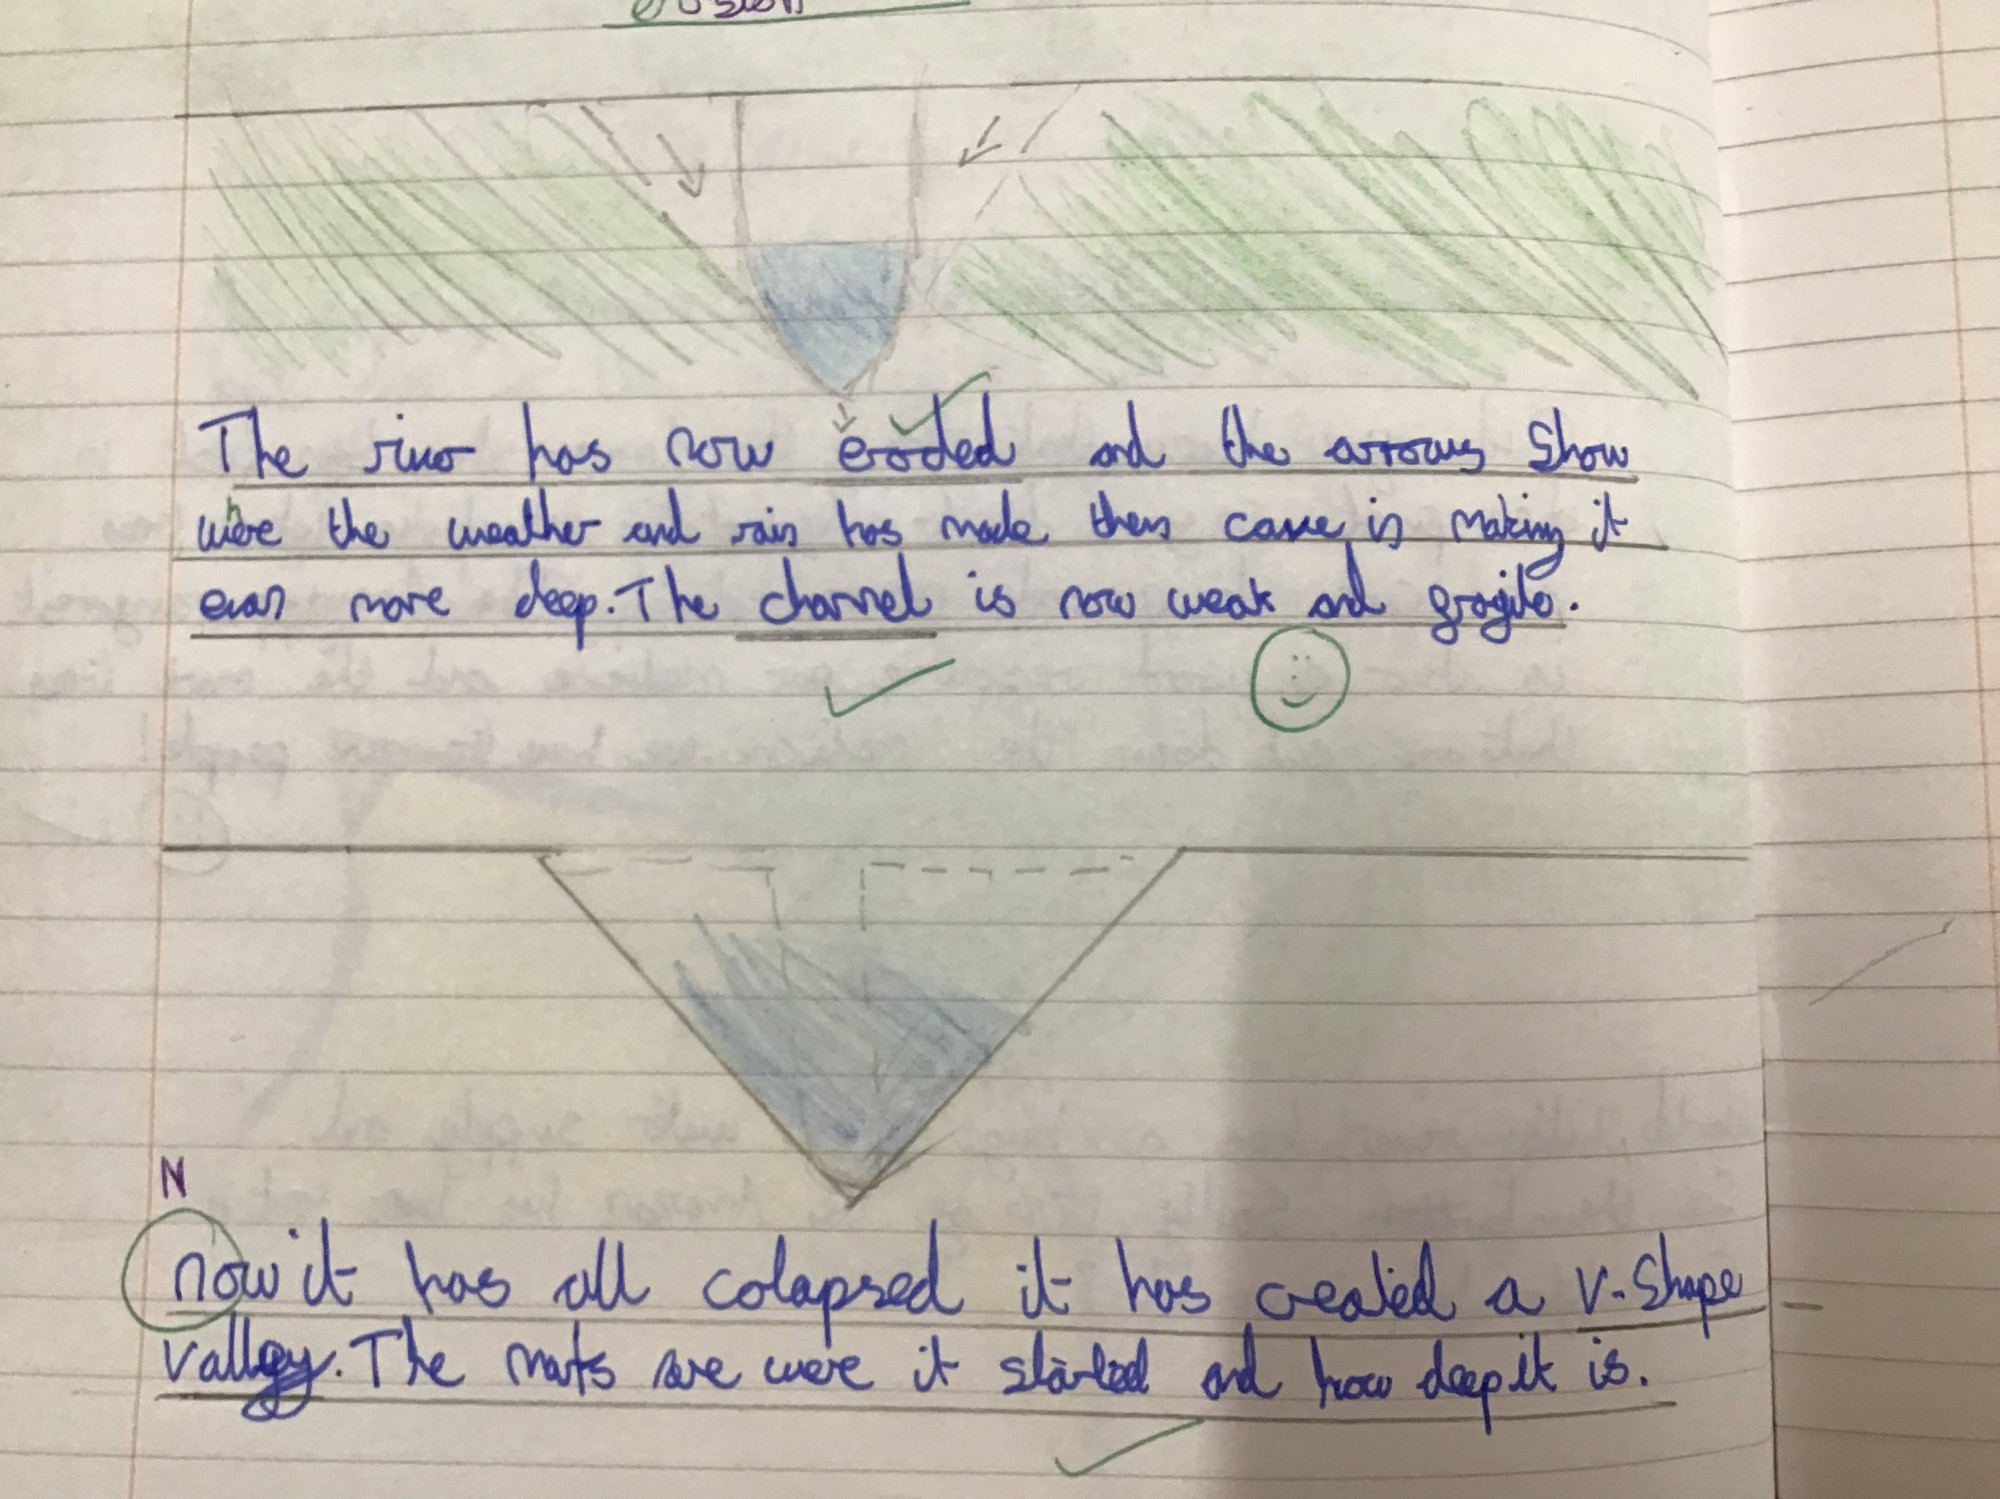 erosion
The river has now eroded and the arrows Show
where the weather and rain has made them cave in making it
even more deep. The channel is now weak and fragile.
N
now it has all colapsed it has created a V-Shape
valley. The marks are were it started and how deep it is.